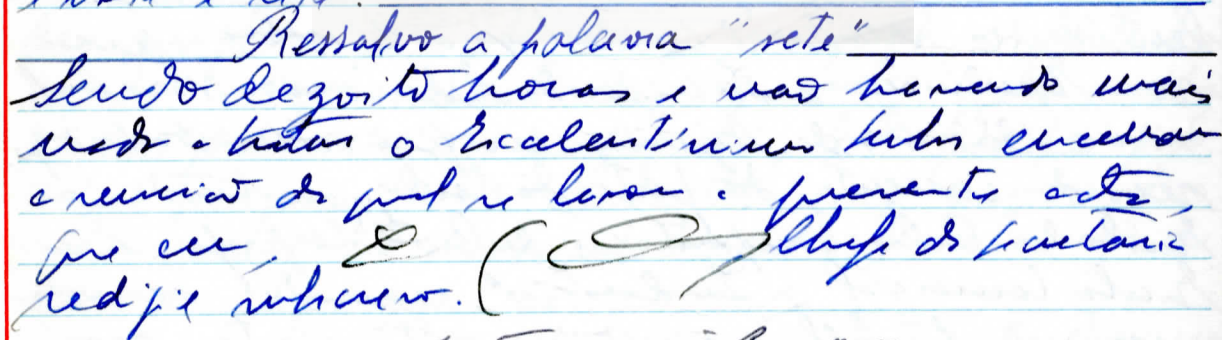 Ressalvo a palavra "sete"
Sendo dezoito horas e não havendo mais
nada a tratar o Excelentíssimo Senhor encerrou
a reunião da qual se lavrou a presente acta,
que eu, Chefe de Secretaria
redigi e subscrevo.